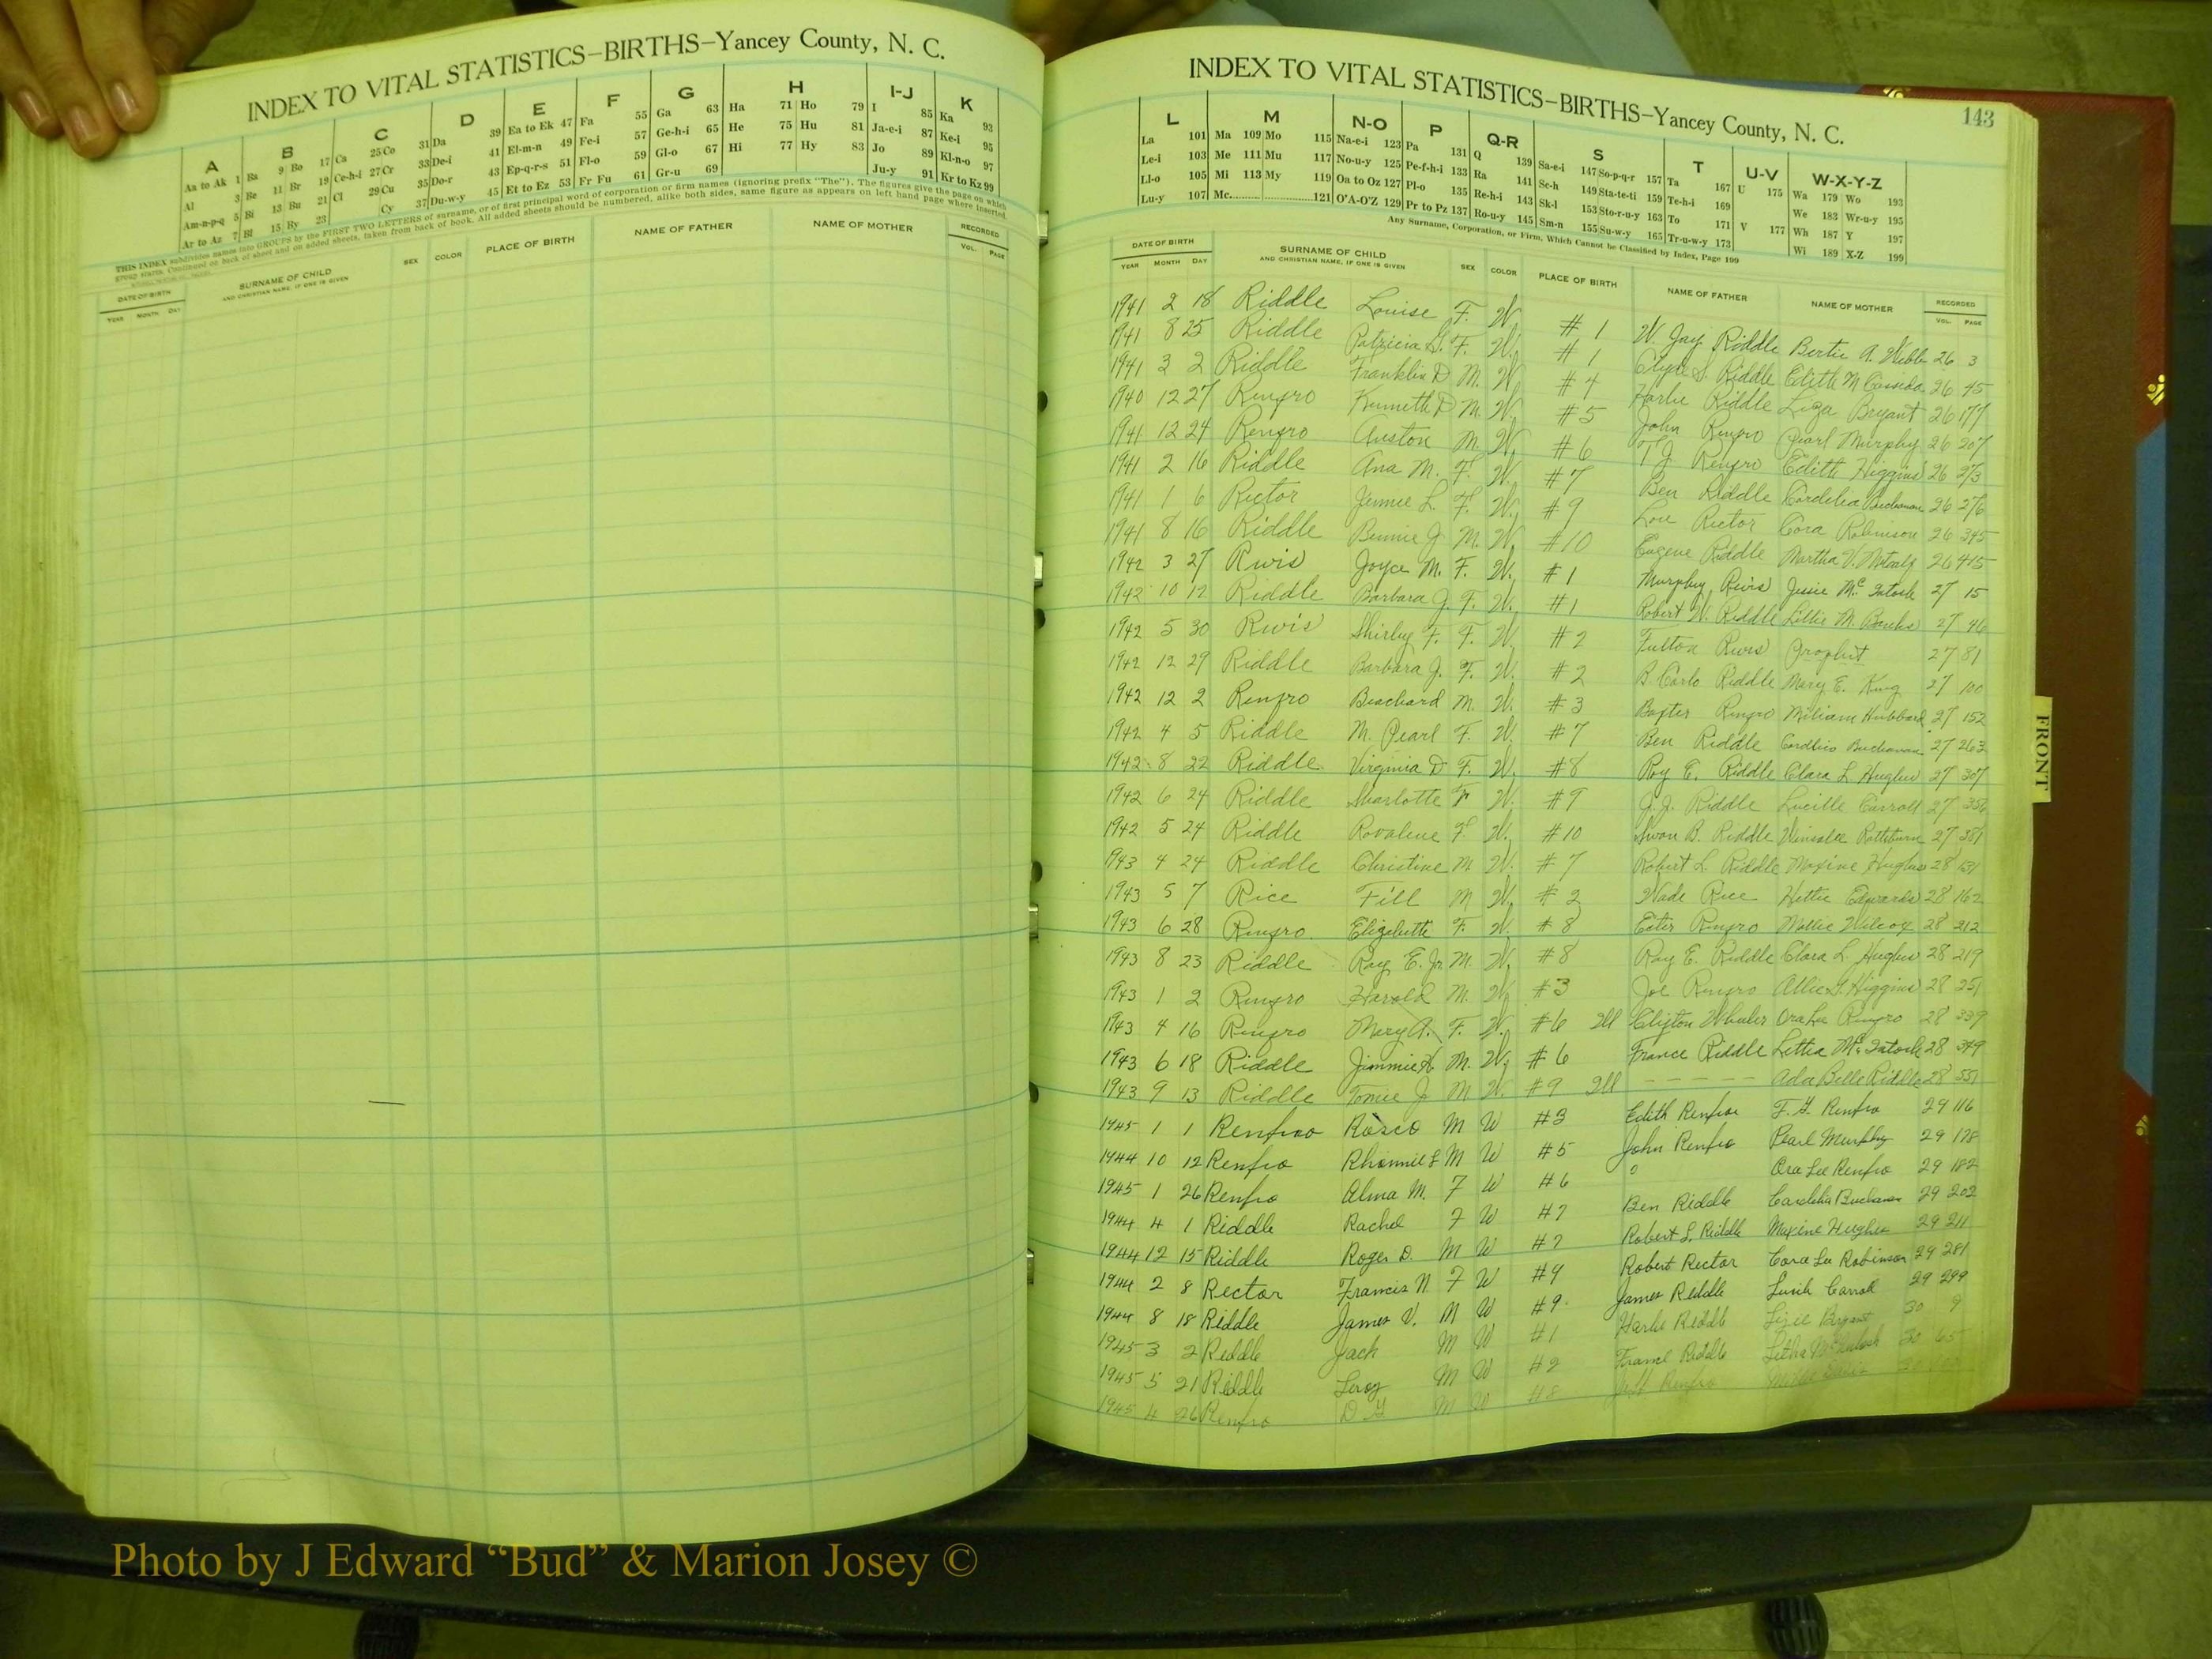 INDEX TO VITAL STATISTICS–BIRTHS–Yancey County, N. C.
A B C D E F G H I-J K
Aa to Ak 1 Ba 9 Bo 17 Ca 25 Co 31 Da 39 Ea to Ek 47 Fa 55 Ga 63 Ha 71 Ho 79 I 85 Ka 93
Al 3 Be 11 Br 19 Ce-h-i 27 Cr 33 De-i 41 El-m-n 49 Fe-i 57 Ge-h-i 65 He 75 Hu 81 Ja-e-i 87 Ke-i 95
Am-n-p-q 5 Bi 13 Bu 21 Cl 29 Cu 35 Do-r 43 Ep-q-r-s 51 Fl-o 59 Gl-o 67 Hi 77 Hy 83 Jo 89 Kl-n-o 97
Ar to Az 7 Bl 15 By 23 Cy 37 Du-w-y 45 Et to Ez 53 Fr Fu 61 Gr-u 69 Ju-y 91 Kr to Kz 99
THIS INDEX subdivides names into GROUPS by the FIRST TWO LETTERS of surname, or of first principal word of corporation or firm names (ignoring prefix "The"). The figures give the page on which
group starts. Continued on back of sheet and on added sheets, taken from back of book. All added sheets should be numbered, alike both sides, same figure as appears on left hand page where inserted.
DATE OF BIRTH SURNAME OF CHILD SEX COLOR PLACE OF BIRTH NAME OF FATHER NAME OF MOTHER RECORDED
YEAR MONTH DAY AND CHRISTIAN NAME, IF ONE IS GIVEN VOL. PAGE
INDEX TO VITAL STATISTICS–BIRTHS–Yancey County, N. C.
143
L M N-O P Q-R S T U-V W-X-Y-Z
La 101 Ma 109 Mo 115 Na-e-i 123 Pa 131 Q 139 Sa-e-i 147 So-p-q-r 157 Ta 167 U 175 Wa 179 Wo 193
Le-i 103 Me 111 Mu 117 No-u-y 125 Pe-f-h-i 133 Ra 141 Sc-h 149 Sta-te-ti 159 Te-h-i 169 We 183 Wr-u-y 195
Ll-o 105 Mi 113 My 119 Oa to Oz 127 Pl-o 135 Re-h-i 143 Sk-l 153 Sto-r-u-y 163 To 171 V 177 Wh 187 Y 197
Lu-y 107 Mc 121 O'A-O'Z 129 Pr to Pz 137 Ro-u-y 145 Sm-n 155 Su-w-y 165 Tr-u-w-y 173 Wi 189 X-Z 199
Any Surname, Corporation, or Firm, Which Cannot be Classified by Index, Page 199
DATE OF BIRTH SURNAME OF CHILD SEX COLOR PLACE OF BIRTH NAME OF FATHER NAME OF MOTHER RECORDED
YEAR MONTH DAY AND CHRISTIAN NAME, IF ONE IS GIVEN VOL. PAGE
1941 2 18 Riddle Louise F. W. #1 W. Jay Riddle Bertie A. 26 3
1941 8 25 Riddle Patricia G. F. W. #1 Clyde S. Riddle Edith M 26 45
1941 3 2 Riddle Franklin D M. W. #4 Harlie Riddle Liza Bryant 26 177
1940 12 27 Renfro Kenneth D M. W. #5 John Renfro Pearl Murphy 26 207
1941 12 24 Renfro Auston M. W. #6 T J Renfro Edith Higgins 26 273
1941 2 16 Riddle Ana M. F. W. #7 Ben Riddle Cordelia Buchanan 26 276
1941 1 6 Rector Jennie L. F. W. #9 Rector Cora Robinson 26 345
1941 8 16 Riddle Bennie J M. W. #10 Eugene Riddle Martha V. Metcalf 26 415
1942 3 27 Rivis Joyce M. F. W. #1 Murphy Rivis Jessie McIntosh 27 15
1942 10 12 Riddle Barbara J. F. W. #1 Robert W. Riddle Lillie M. Banks 27 46
1942 5 30 Rivis Shirley F. F. W. #2 Fulton Rivis Prophet 27 81
1942 12 29 Riddle Barbara J. F. W. #2 B Carlo Riddle Mary E. King 27 100
1942 12 2 Renfro Beachard M. W. #3 Baxter Renfro Hubbard 27 152
1942 4 5 Riddle M. Pearl F. W. #7 Ben Riddle Buchanan 27 263
1942 8 22 Riddle Virginia D F. W. #8 Roy E. Riddle Clara L Hughes 27 307
1942 6 24 Riddle Sharlotte F W. #9 J.J. Riddle Lucille Carroll 27 356
1942 5 24 Riddle Rovalene F W. #10 B. Riddle 27 381
1943 4 24 Riddle Christine M. W. #7 Robert L. Riddle Maxine Hughes 28 131
1943 5 7 Rice Fill M W. #2 Wade Rice Hettie Edwards 28 162
1943 6 28 Renfro Elizabeth F. W. #8 Ester Renfro Mollie Wilcox 28 212
1943 8 23 Riddle Roy E. Jr M. W. #8 Roy E. Riddle Clara L Hughes 28 219
1943 1 2 Renfro Harold M. W. #3 Joe Renfro Allie Higgins 28 251
1943 4 16 Renfro Mary A. F. W. #6 Ill Clifton Wheeler Ora Lee Renfro 28 339
1943 6 18 Riddle Jimmie H M. W. #6 France Riddle McIntosh 28 349
1943 9 13 Riddle Tomie J M W. #9 Ill – – – – – Ada Belle Riddle 28 551
1945 1 1 Renfroo Rosco M W #3 Edith Renfroe F. G. Renfro 29 116
1944 10 12 Renfro Rhonnie L M W #5 John Renfro Pearl Murphy 29 178
1945 1 26 Renfro Alma M. F W #6 0 Ora Lee Renfro 29 182
1944 4 1 Riddle Rachel F W #7 Ben Riddle Cardelia Buchanan 29 202
1944 12 15 Riddle Roger D. M W #7 Robert L. Riddle Maxine Hughes 29 211
1944 2 8 Rector Francis N F W #9 Robert Rector Cora Lee Robinson 29 281
1944 8 18 Riddle James V. M W #9 James Riddle Carroll 29 299
1945 3 2 Riddle Jack M W #1 Harlie Riddle Bryant 30 9
1945 5 21 Riddle Leroy M W #2 Riddle McIntosh 30 65
1945 4 26 Renfro D G M W #8 Renfro
FRONT
Photo by J Edward “Bud” & Marion Josey ©